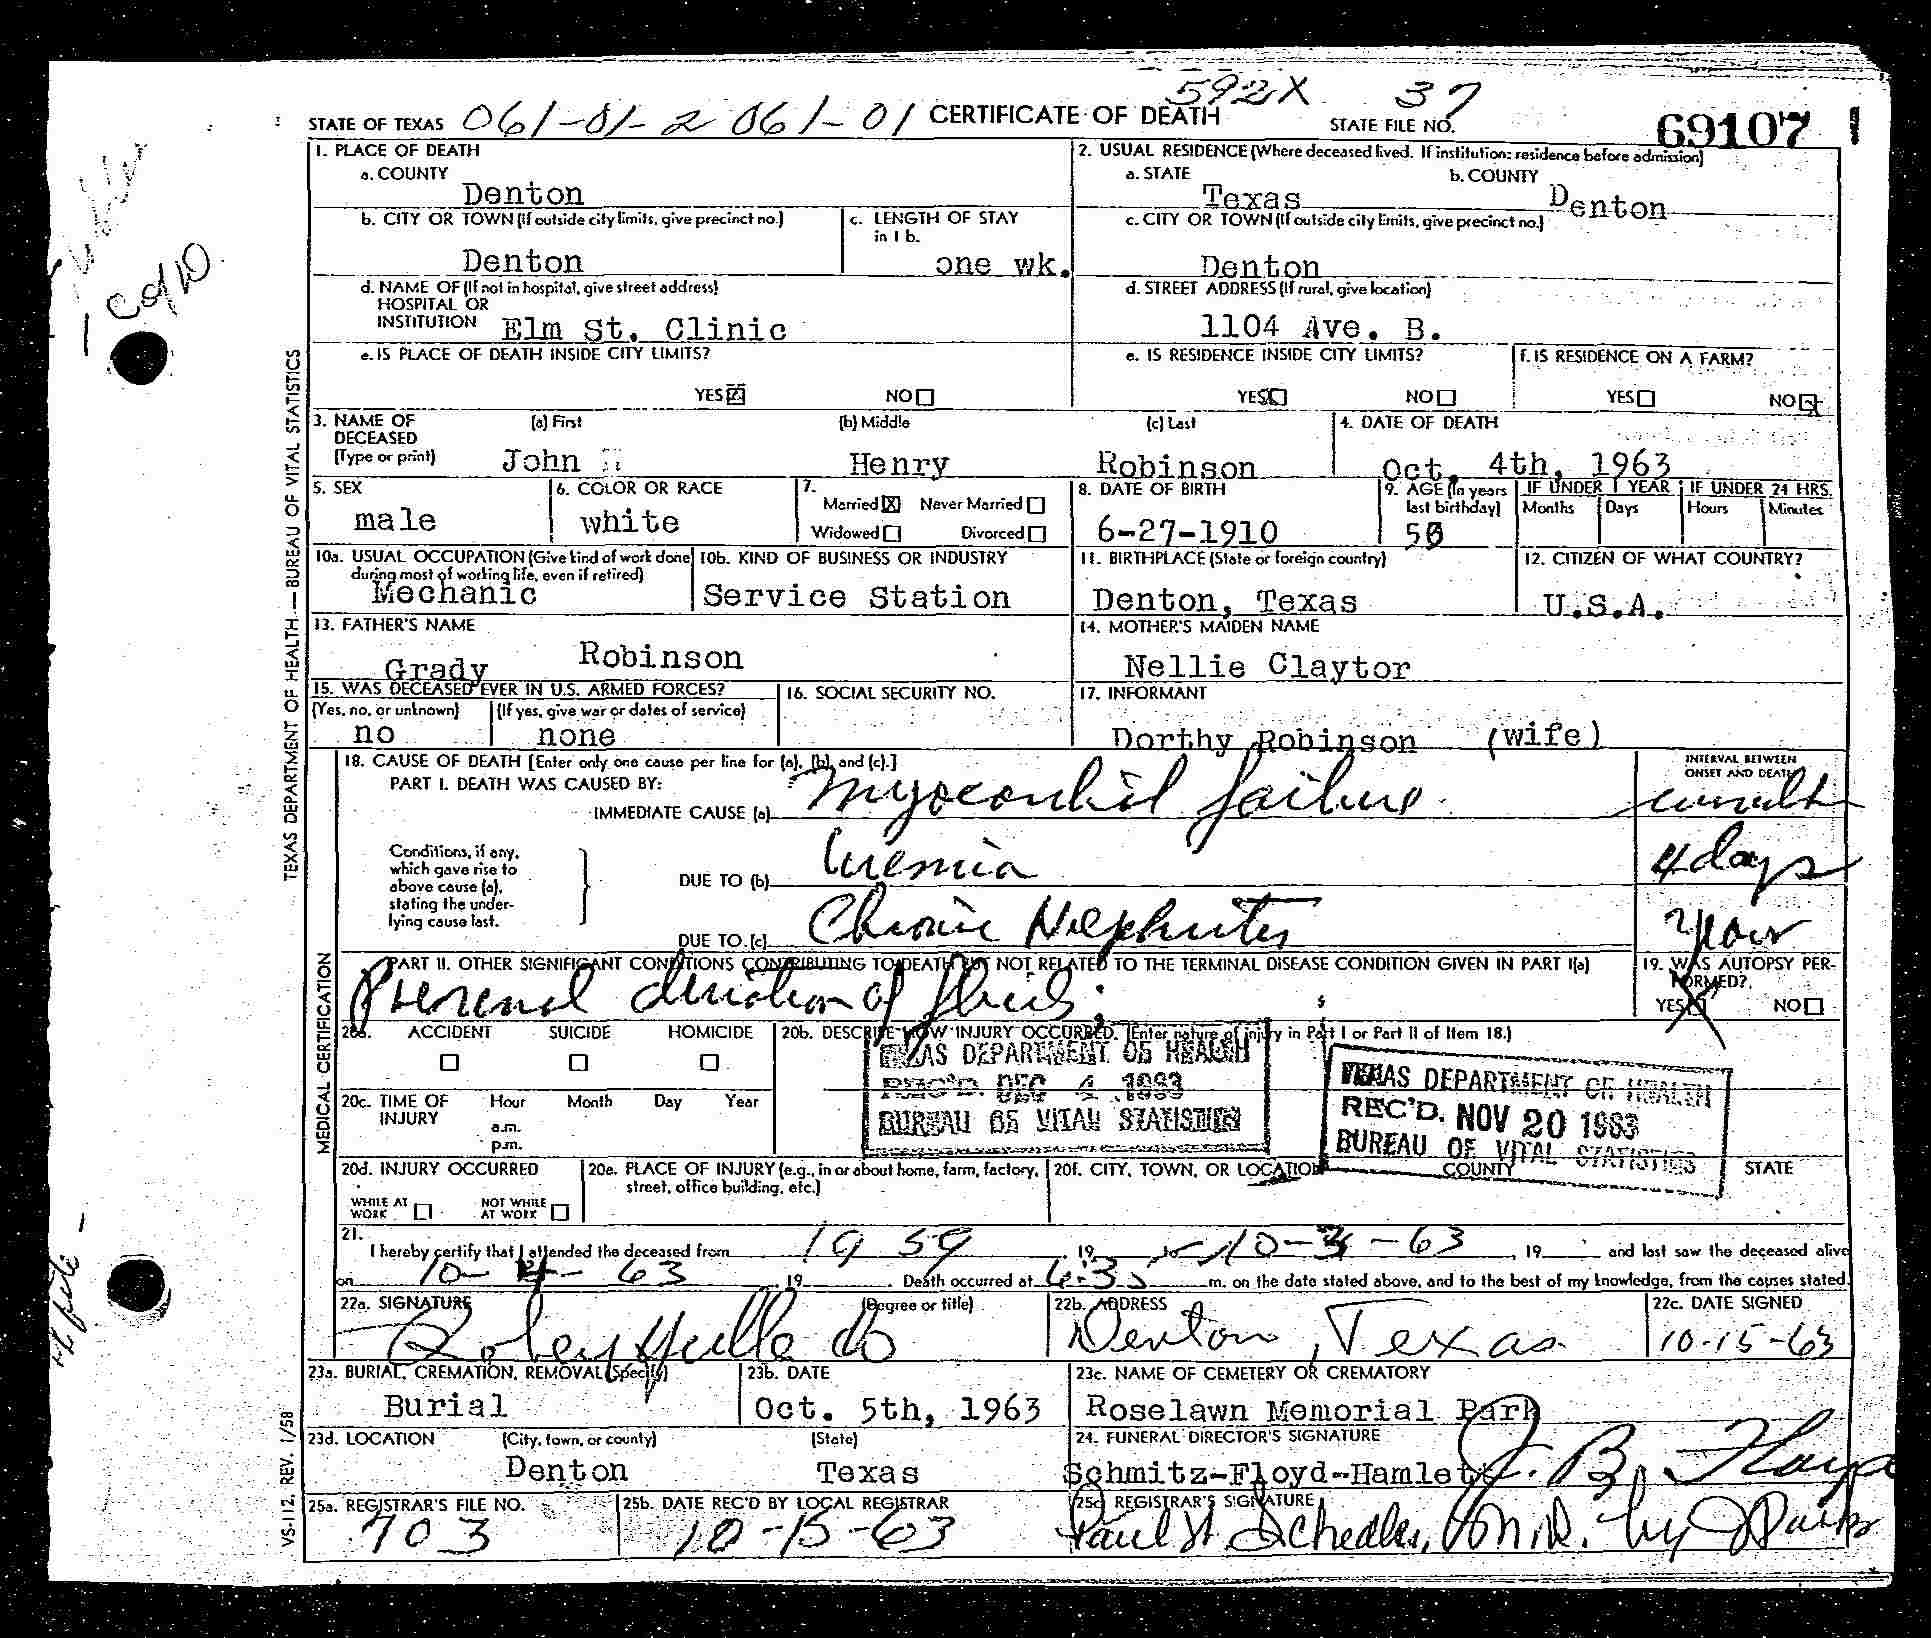 592X 37
STATE OF TEXAS 061-01-2 061-01 CERTIFICATE OF DEATH STATE FILE NO. 69107 1
1. PLACE OF DEATH
a. COUNTY
Denton
2. USUAL RESIDENCE (Where deceased lived. If institution: residence before admission)
a. STATE b. COUNTY
Texas Denton
b. CITY OR TOWN (If outside city limits, give precinct no.)
Denton
c. LENGTH OF STAY in 1 b.
one wk.
c. CITY OR TOWN (If outside city limits, give precinct no.)
Denton
d. NAME OF (If not in hospital, give street address)
HOSPITAL OR
INSTITUTION Elm St. Clinic
d. STREET ADDRESS (If rural, give location)
1104 Ave. B.
e. IS PLACE OF DEATH INSIDE CITY LIMITS?
YES NO
e. IS RESIDENCE INSIDE CITY LIMITS?
YES NO
f. IS RESIDENCE ON A FARM?
YES NO
3. NAME OF DECEASED (Type or print)
(a) First (b) Middle (c) Last
John Henry Robinson
4. DATE OF DEATH
Oct. 4th, 1963
5. SEX
male
6. COLOR OR RACE
white
7.
Married Never Married
Widowed Divorced
8. DATE OF BIRTH
6-27-1910
9. AGE (In years last birthday)
IF UNDER 1 YEAR IF UNDER 24 HRS.
Months Days Hours Minutes
10a. USUAL OCCUPATION (Give kind of work done during most of working life, even if retired)
Mechanic
10b. KIND OF BUSINESS OR INDUSTRY
Service Station
11. BIRTHPLACE (State or foreign country)
Denton, Texas
12. CITIZEN OF WHAT COUNTRY?
U.S.A.
13. FATHER'S NAME
Grady Robinson
14. MOTHER'S MAIDEN NAME
Nellie Claytor
15. WAS DECEASED EVER IN U.S. ARMED FORCES?
(Yes, no, or unknown) (If yes, give war or dates of service)
no none
16. SOCIAL SECURITY NO.
17. INFORMANT
Dorthy Robinson (wife)
18. CAUSE OF DEATH [Enter only one cause per line for (a), (b), and (c).]
PART I. DEATH WAS CAUSED BY:
IMMEDIATE CAUSE (a) Myocardial failure
INTERVAL BETWEEN ONSET AND DEATH
Conditions, if any, which gave rise to above cause (a), stating the underlying cause last.
DUE TO (b) Uremia 4 days
DUE TO (c) Chronic Nephritis years
PART II. OTHER SIGNIFICANT CONDITIONS CONTRIBUTING TO DEATH BUT NOT RELATED TO THE TERMINAL DISEASE CONDITION GIVEN IN PART I(a)
of fluids
19. WAS AUTOPSY PERFORMED?
YES NO
20a. ACCIDENT SUICIDE HOMICIDE
20b. DESCRIBE HOW INJURY OCCURRED. (Enter nature of injury in Part I or Part II of Item 18.)
TEXAS DEPARTMENT OF HEALTH
REC'D. DEC 4 1963
BUREAU OF VITAL STATISTICS
TEXAS DEPARTMENT OF HEALTH
REC'D. NOV 20 1963
BUREAU OF VITAL STATISTICS
20c. TIME OF INJURY Hour Month Day Year
a.m.
p.m.
20d. INJURY OCCURRED
WHILE AT WORK NOT WHILE AT WORK
20e. PLACE OF INJURY (e.g., in or about home, farm, factory, street, office building, etc.)
20f. CITY, TOWN, OR LOCATION COUNTY STATE
21.
I hereby certify that I attended the deceased from 1959, 19 to 10-3-63, 19 and last saw the deceased alive
on 10-4-63, 19. Death occurred at 6:35 m. on the date stated above, and to the best of my knowledge, from the causes stated.
22a. SIGNATURE (Degree or title)
22b. ADDRESS
Denton, Texas
22c. DATE SIGNED
10-15-63
23a. BURIAL, CREMATION, REMOVAL (Specify)
Burial
23b. DATE
Oct. 5th, 1963
23c. NAME OF CEMETERY OR CREMATORY
Roselawn Memorial Park
23d. LOCATION (City, town, or county) (State)
Denton Texas
24. FUNERAL DIRECTOR'S SIGNATURE
Schmitz-Floyd-Hamlett J. B. Floyd
25a. REGISTRAR'S FILE NO.
703
25b. DATE REC'D BY LOCAL REGISTRAR
10-15-63
25c. REGISTRAR'S SIGNATURE
TEXAS DEPARTMENT OF HEALTH — BUREAU OF VITAL STATISTICS
MEDICAL CERTIFICATION
VS-112, REV. 1/58